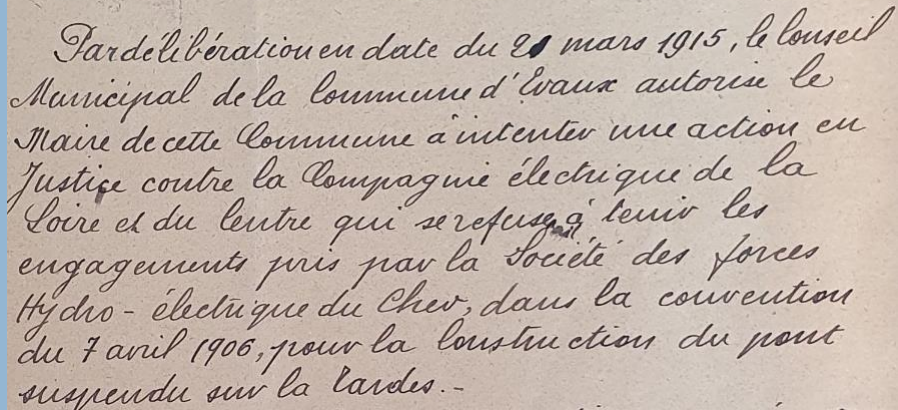 Par délibération en date du 21 mars 1915, le Conseil
Municipal de la Commune d'Evaux autorise le
Maire de cette Commune à intenter une action en
Justice contre la Compagnie électrique de la
Loire et du Centre qui se refuse à tenir les
engagements pris par la Société des forces
Hydro-électrique du Cher, dans la convention
du 7 avril 1906, pour la Construction du pont
suspendu sur la Tardes.-